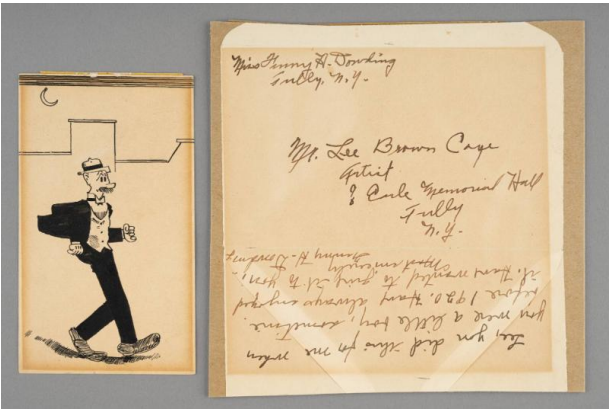 Miss H. Dowding
Tully, N.Y.-
Mr. Lee Brown Coye
Artist
% Carle Memorial Hall
Tully
N.Y.-
Lee, you did this for me when
you were a little boy, sometime
before 1920. Have always enjoyed
it. Have wanted to give it to you,-
Most sincerely
H. Dowding